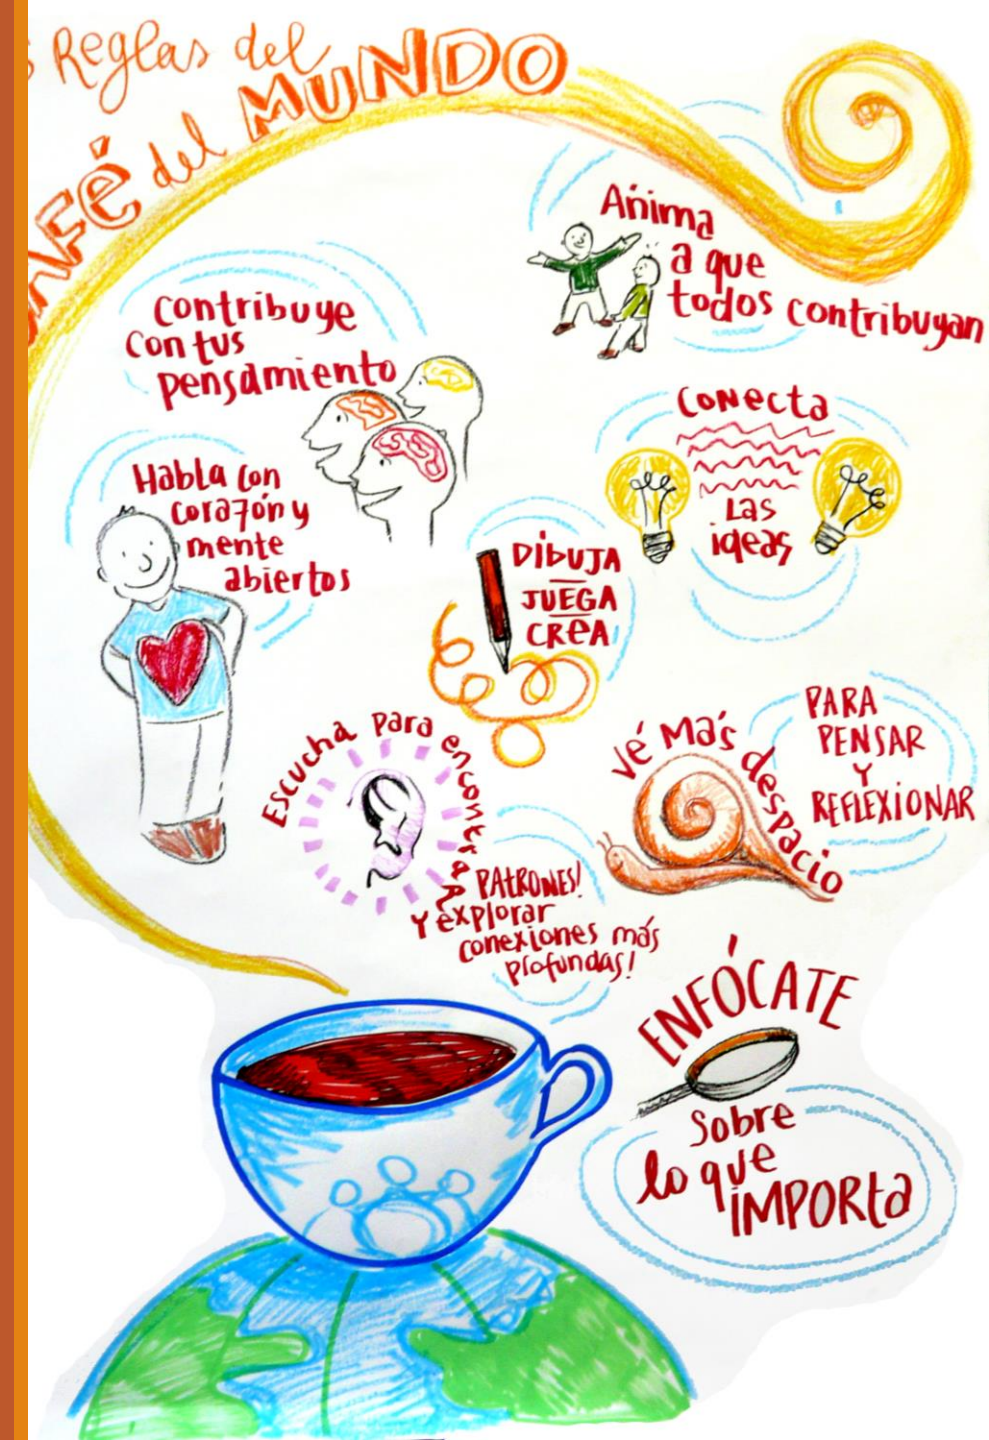 s Reglas del
MUNDO
CAFé del
Anima
a que
todos contribuyan
Contribuye
con tus
pensamiento
Conecta
Las
ideas
Habla con
corazón y
mente
abiertos
DibuJA
JUEGA
CReA
Escucha para encontrar
PAtRONES!
Y explorar
conexiones más
profundas!
Vé Más despacio
PARA
PENSAR
Y
REFLEXIONAR
ENFÓCATE
Sobre
lo que
IMPORta